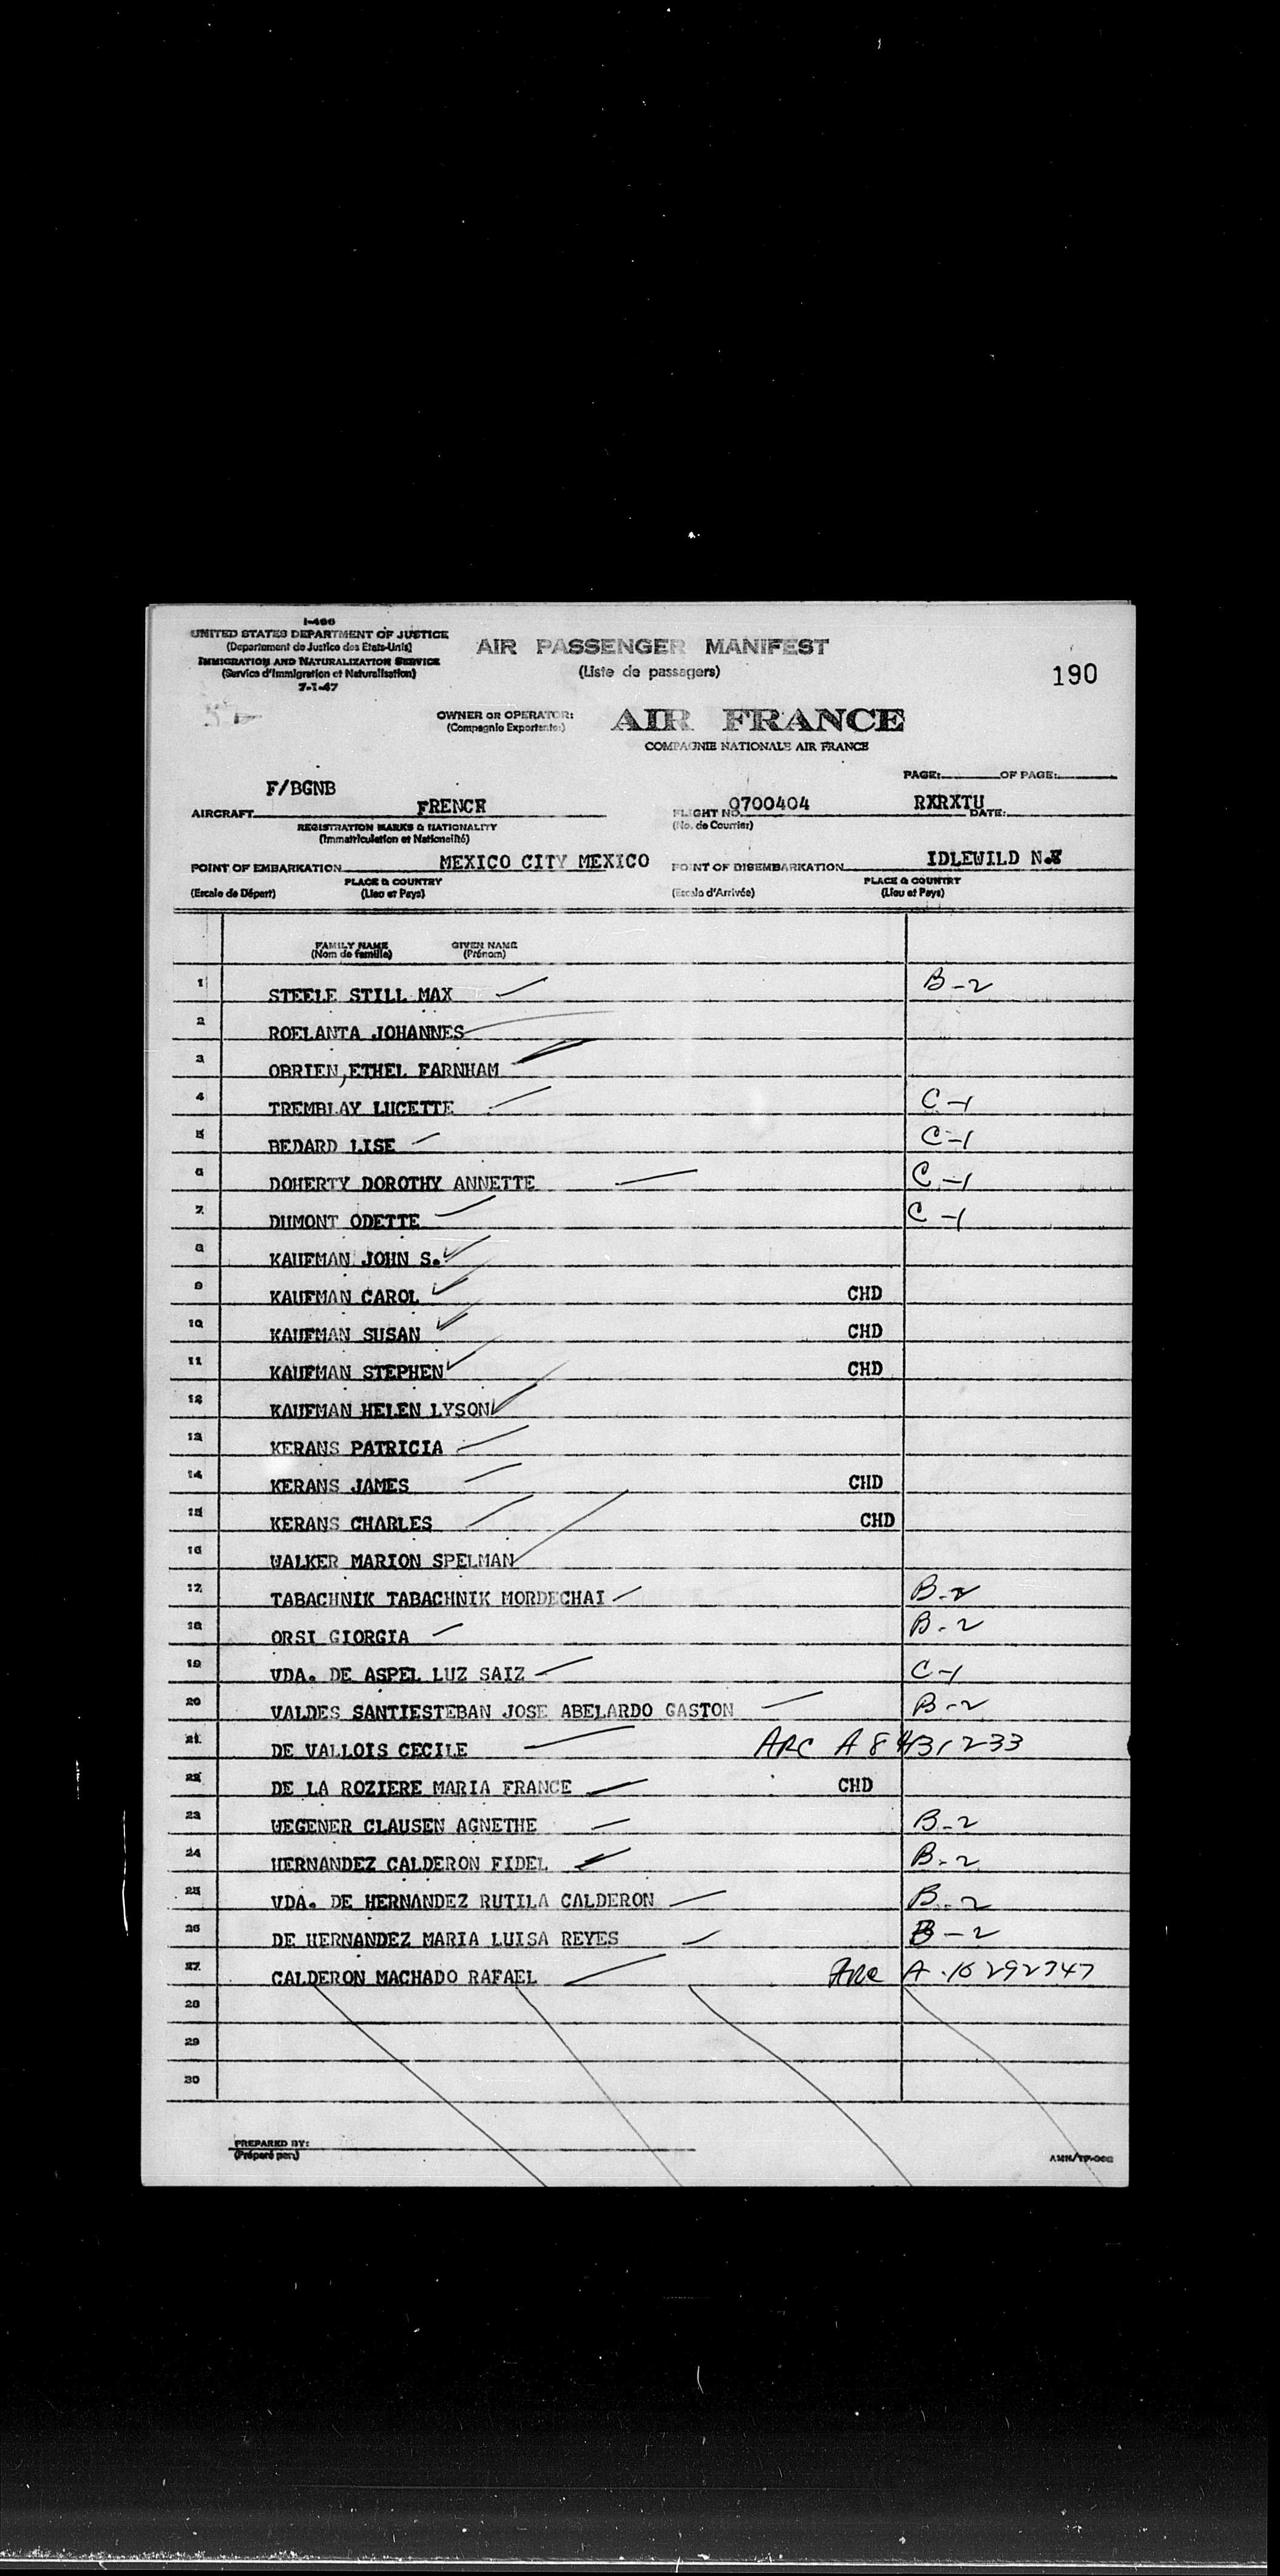 I-466
UNITED STATES DEPARTMENT OF JUSTICE
(Departement de Justice des Etats-Unis)
IMMIGRATION AND NATURALIZATION SERVICE
(Service d'Immigration et Naturalisation)
7-1-47
AIR PASSENGER MANIFEST
(Liste de passagers)
190
OWNER OR OPERATOR: AIR FRANCE
(Compagnie Exportante:)
COMPAGNIE NATIONALE AIR FRANCE
PAGE: OF PAGE:
AIRCRAFT F/BGNB FRENCH FLIGHT NO. 0700404 RXRXTU DATE:
REGISTRATION MARKS & NATIONALITY (No. de Courrier)
(Immatriculation et Nationalité)
POINT OF EMBARKATION MEXICO CITY MEXICO POINT OF DISEMBARKATION IDLEWILD N.Y
(Escale de Départ) PLACE & COUNTRY (Escale d'Arrivée) PLACE & COUNTRY
(Lieu et Pays) (Lieu et Pays)
FAMILY NAME GIVEN NAME
(Nom de famille) (Prénom)
1 STEELE STILL MAX B-2
2 ROELANTA JOHANNES
3 OBRIEN,ETHEL FARNHAM
4 TREMBLAY LUCETTE C-1
5 BEDARD LISE C-1
6 DOHERTY DOROTHY ANNETTE C-1
7 DUMONT ODETTE C-1
8 KAUFMAN JOHN S.
9 KAUFMAN CAROL CHD
10 KAUFMAN SUSAN CHD
11 KAUFMAN STEPHEN CHD
12 KAUFMAN HELEN LYSON
13 KERANS PATRICIA
14 KERANS JAMES CHD
15 KERANS CHARLES CHD
16 WALKER MARION SPELMAN
17 TABACHNIK TABACHNIK MORDECHAI B-2
18 ORSI GIORGIA B-2
19 VDA. DE ASPEL LUZ SAIZ C-1
20 VALDES SANTIESTEBAN JOSE ABELARDO GASTON B-2
21 DE VALLOIS CECILE ARC A8431233
22 DE LA ROZIERE MARIA FRANCE CHD
23 WEGENER CLAUSEN AGNETHE B-2
24 HERNANDEZ CALDERON FIDEL B-2
25 VDA. DE HERNANDEZ RUTILA CALDERON B-2
26 DE HERNANDEZ MARIA LUISA REYES B-2
27 CALDERON MACHADO RAFAEL ARC A-10292747
28
29
30
PREPARED BY:
(Préparé par:)